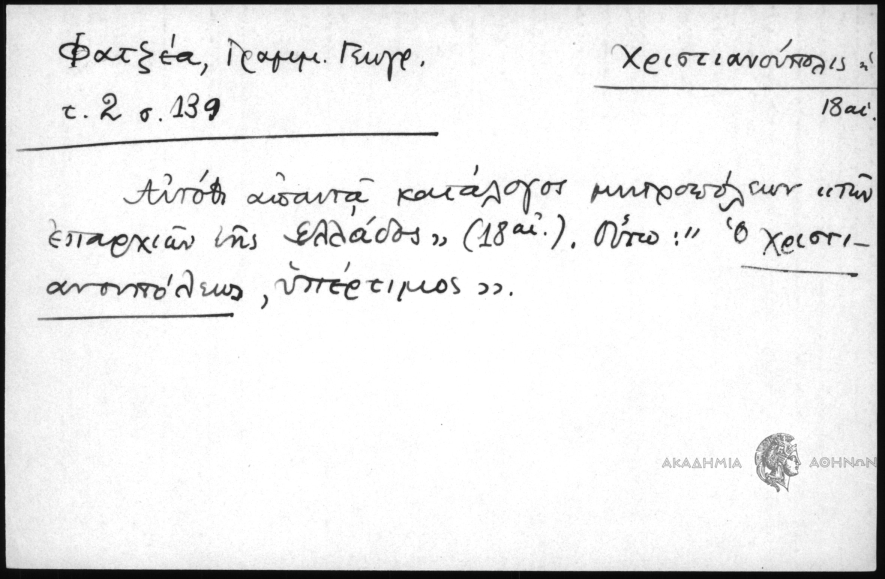 Φατζέα, Γραμμ. Γεωγρ.
τ. 2 σ. 139
Χριστιανούπολις ἡ
18 αἰ.
Αὐτόθι ἀπαντᾶ κατάλογος μητροπόλεων «τῶν
ἐπαρχιῶν τῆς Ἑλλάδος» (18 αἰ.). Οὕτω: " Ὁ Χριστι-
ανουπόλεως, ὑπέρτιμος ».
ΑΚΑΔΗΜΙΑ ΑΘΗΝΩΝ